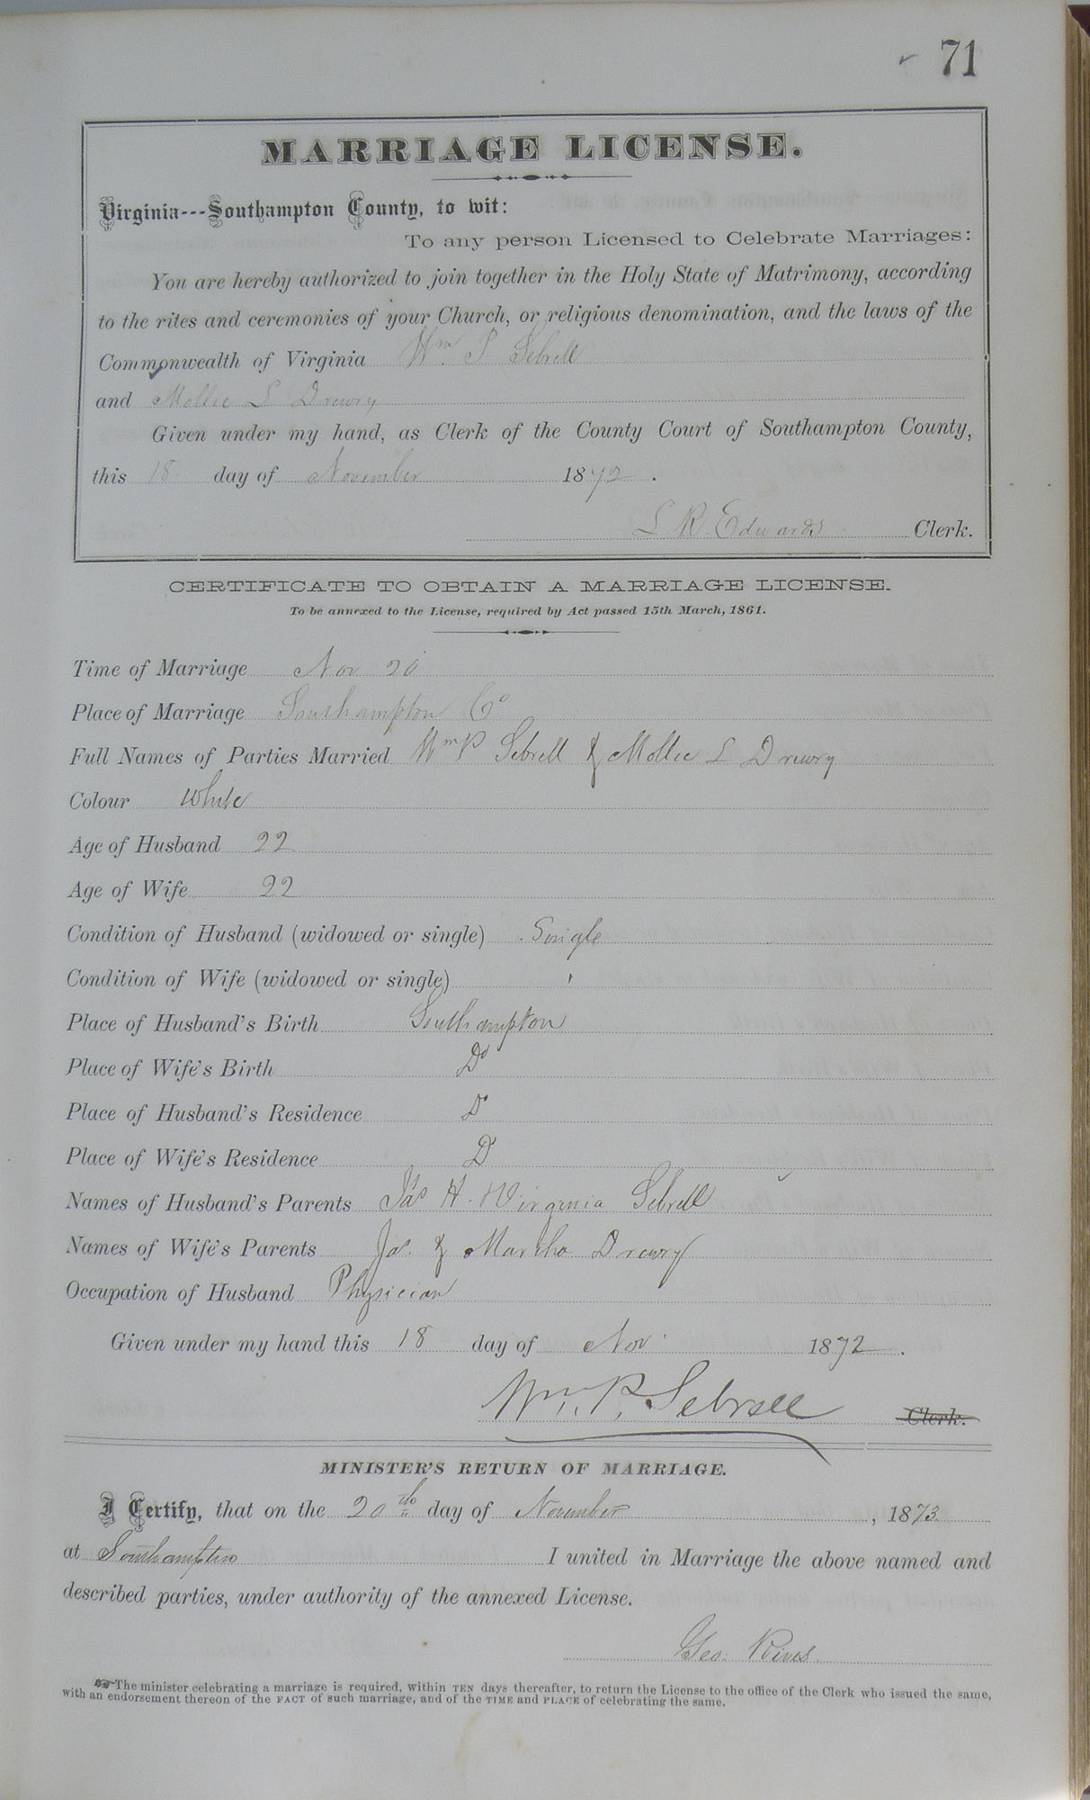 71
MARRIAGE LICENSE.
Virginia---Southampton County, to wit:
To any person Licensed to Celebrate Marriages:
You are hereby authorized to join together in the Holy State of Matrimony, according
to the rites and ceremonies of your Church, or religious denomination, and the laws of the
Commonwealth of Virginia Wm P Sebrell
and Mollie L Drewry
Given under my hand, as Clerk of the County Court of Southampton County,
this 18 day of November 1872.
L R Edwards Clerk.
CERTIFICATE TO OBTAIN A MARRIAGE LICENSE.
To be annexed to the License, required by Act passed 15th March, 1861.
Time of Marriage Nov 20
Place of Marriage Southampton Co
Full Names of Parties Married Wm P Sebrell & Mollie L Drewry
Colour White
Age of Husband 22
Age of Wife 22
Condition of Husband (widowed or single) Single
Condition of Wife (widowed or single) '
Place of Husband's Birth Southampton
Place of Wife's Birth Do
Place of Husband's Residence Do
Place of Wife's Residence D
Names of Husband's Parents Jas H. Virginia Sebrell
Names of Wife's Parents Jas. & Martha Drewry
Occupation of Husband Physician
Given under my hand this 18 day of Nov. 1872.
Wm. P. Sebrell Clerk.
MINISTER'S RETURN OF MARRIAGE.
I Certify, that on the 20th day of November, 1873
at Southampton I united in Marriage the above named and
described parties, under authority of the annexed License.
Geo. Rives
The minister celebrating a marriage is required, within TEN days thereafter, to return the License to the office of the Clerk who issued the same,
with an endorsement thereon of the FACT of such marriage, and of the TIME and PLACE of celebrating the same.